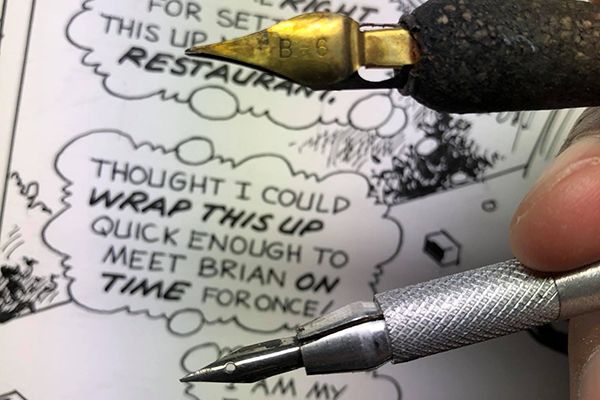 RIGHT
FOR
THIS UP
RESTAURANT.
B-6
THOUGHT I COULD
WRAP THIS UP
QUICK ENOUGH TO
MEET BRIAN ON
TIME FOR ONCE!
I AM MY